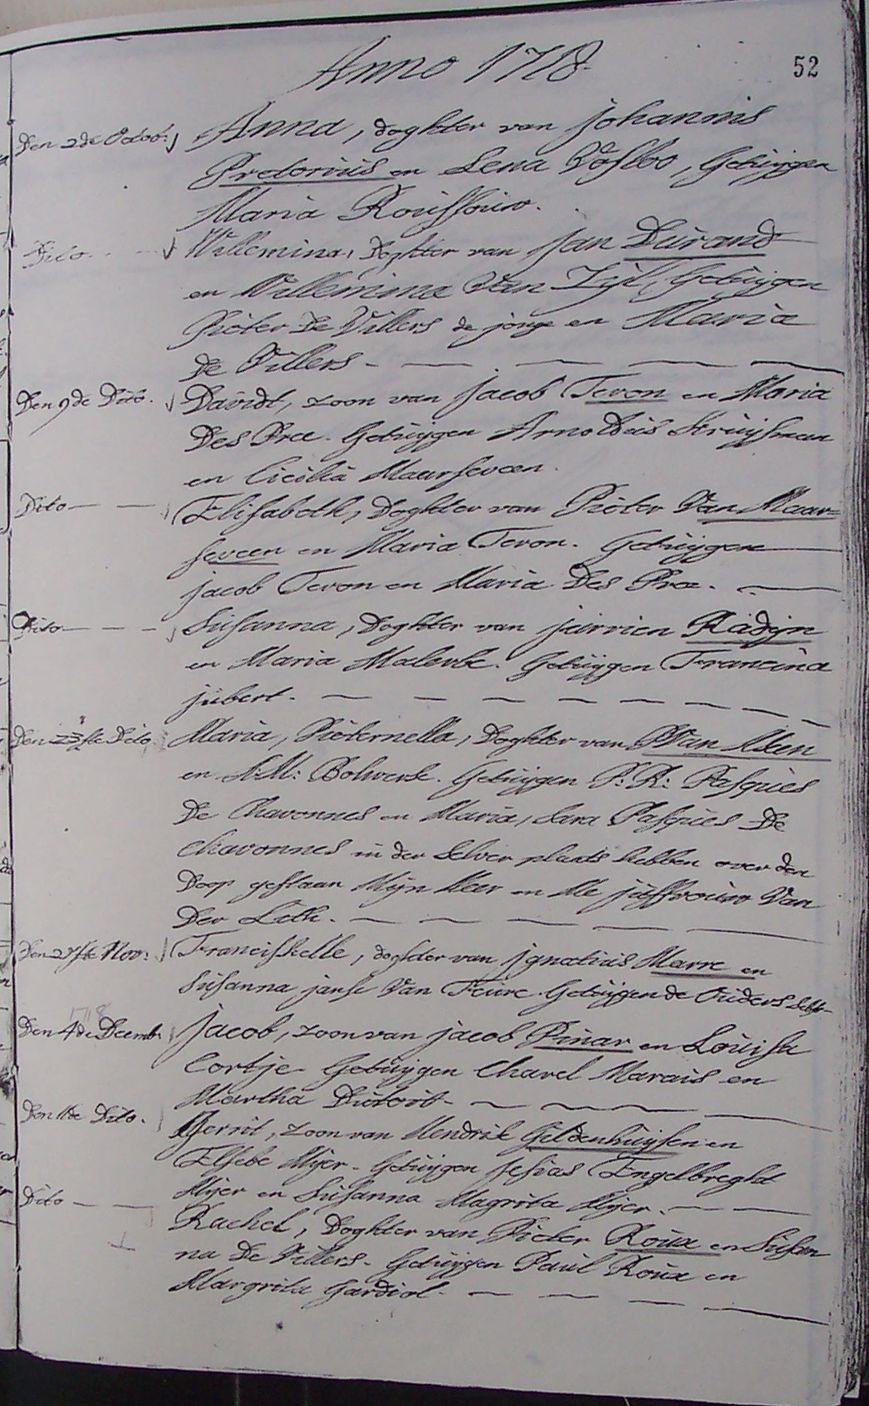 Anno 1718
52
Den 2de Octob: Anna, doghter van Johannis
Pretorius en Lena Vosloo, Getuijgen
Maria Roussouw.
Dito Willemina, Doghter van Jan Durand
en Willemina Van Zijl, Getuijgen
Pieter De Villers de jonge en Maria
De Villers
Den 9de Dito. Davidt, zoon van Jacob Teron en Maria
Des Pree. Getuijgen Arnoldus Kruijsman
en Cicilia Maarseveen.
Dito Elisabeth, Doghter van Pieter Van Maar=
seveen en Maria Teron. Getuijgen
Jacob Teron en Maria Des Pree.
Dito Susanna, Doghter van Jurrien Radijn
en Maria Malerbe. Getuijgen Francina
Jubert.
Den Dito Maria, Pieternella, Doghter van
en A:M: Bolwerk. Getuijgen P: R: Pasques
De Chavonnes en Maria, Sara Pasques De
Chavonnes in der selver plaats hebben over den
Doop gestaan Mijn Heer en Me Juffrouw Van
Der Leth.
Den 27ste Nov: Franciskelle, doghter van Ignatius Marre en
Susanna Janse Van Feure. Getuijgen de Ouders self
1718
Den 4de Decemb. Jacob, zoon van Jacob Pinar en Louisa
Cortje. Getuijgen Charel Marais en
Martha Dutoit
Den 11de Dito. Gerrit, zoon van Hendrik Geldenhuijsen en
Elsebe Mijer. Getuijgen Jesias Engelbreght
Mijer en Susanna Magrita Mijer.
Dito Rachel, Doghter van Pieter Roux en Susan
na De Villers. Getuijgen Paul Roux en
Margrita Gardiol.